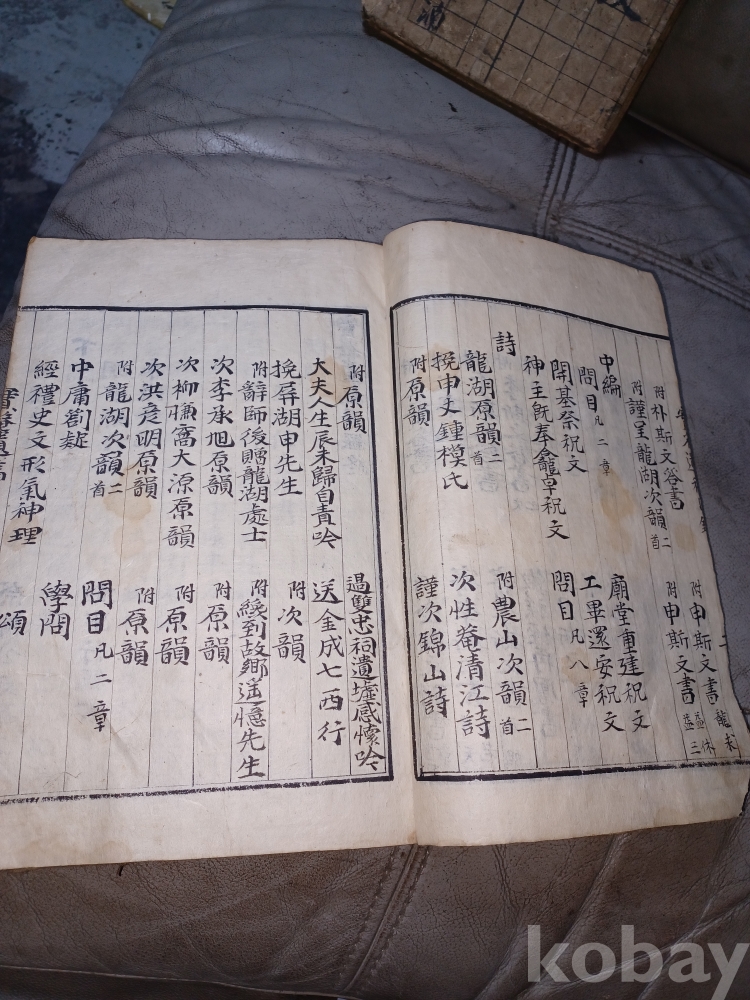 附申斯文書
附朴斯文答書 附申斯文書 益休 益三
附謹呈龍湖次韻 二首
中編
問目 凡二章
開基祭祝文 廟堂重建祝文
神主旣奉龕卓祝文 工畢還安祝文
詩 問目 凡八章
龍湖原韻 二首 附農山次韻 二首
挽申丈鍾模氏 次性菴清江詩
附原韻 謹次錦山詩
附原韻 過雙忠祠遺墟感懷吟
大夫人生辰未歸自責吟 送金成七西行
挽屛湖申先生 附次韻
附辭師後贈龍湖處士 附纔到故鄉追憶先生
次李承旭原韻 附原韻
次柳謙窩大源原韻 附原韻
次洪彦明原韻 附原韻
附龍湖次韻 二首 問目 凡二章
中庸箚疑 學問
經禮史文形氣神理 頌
kobay